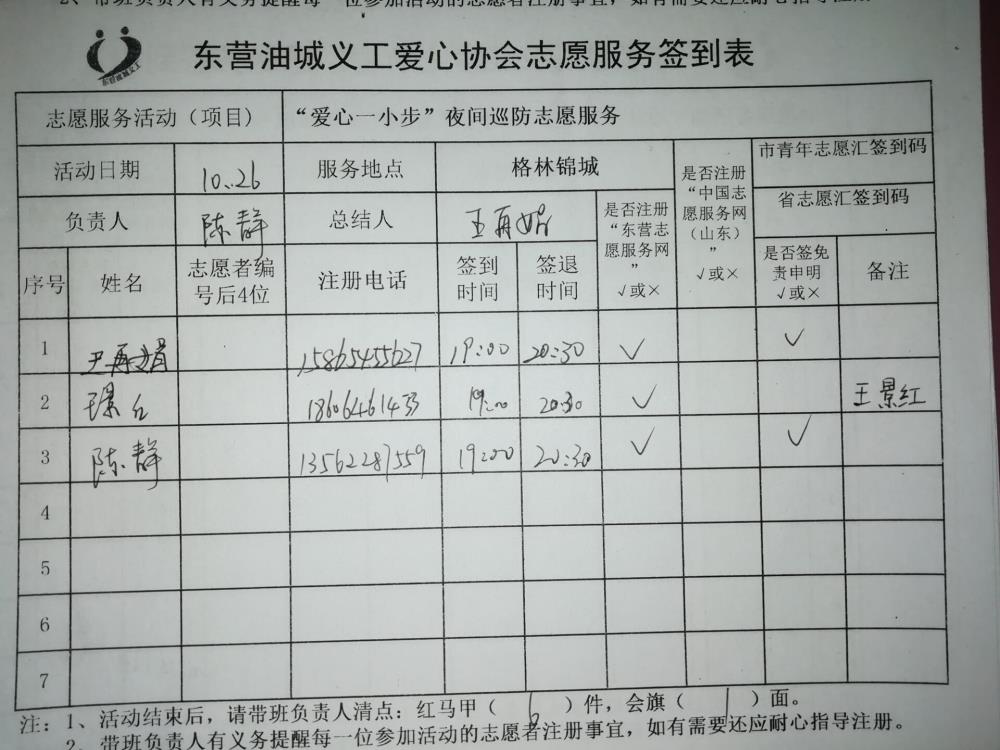 2、带班负责人有义务提醒每一位参加活动的志愿者注册事宜，如有需要还应耐心指导注册。
东营油城义工
东营油城义工爱心协会志愿服务签到表
志愿服务活动（项目） “爱心一小步”夜间巡防志愿服务
活动日期 10.26 服务地点 格林锦城
是否注册“中国志愿服务网（山东）” √或×
市青年志愿汇签到码
省志愿汇签到码
负责人 陈静 总结人 王再娟
是否注册“东营志愿服务网” √或×
序号 姓名 志愿者编号后4位 注册电话 签到时间 签退时间 是否签免责申明 √或× 备注
1 尹再娟 15865455627 19:00 20:30 √ √
2 景红 18606461433 19:00 20:30 √ 王景红
3 陈静 13562287559 19:00 20:30 √ √
4
5
6
7
注：1、活动结束后，请带班负责人清点：红马甲（ 6 ）件，会旗（ 1 ）面。
2、带班负责人有义务提醒每一位参加活动的志愿者注册事宜，如有需要还应耐心指导注册。